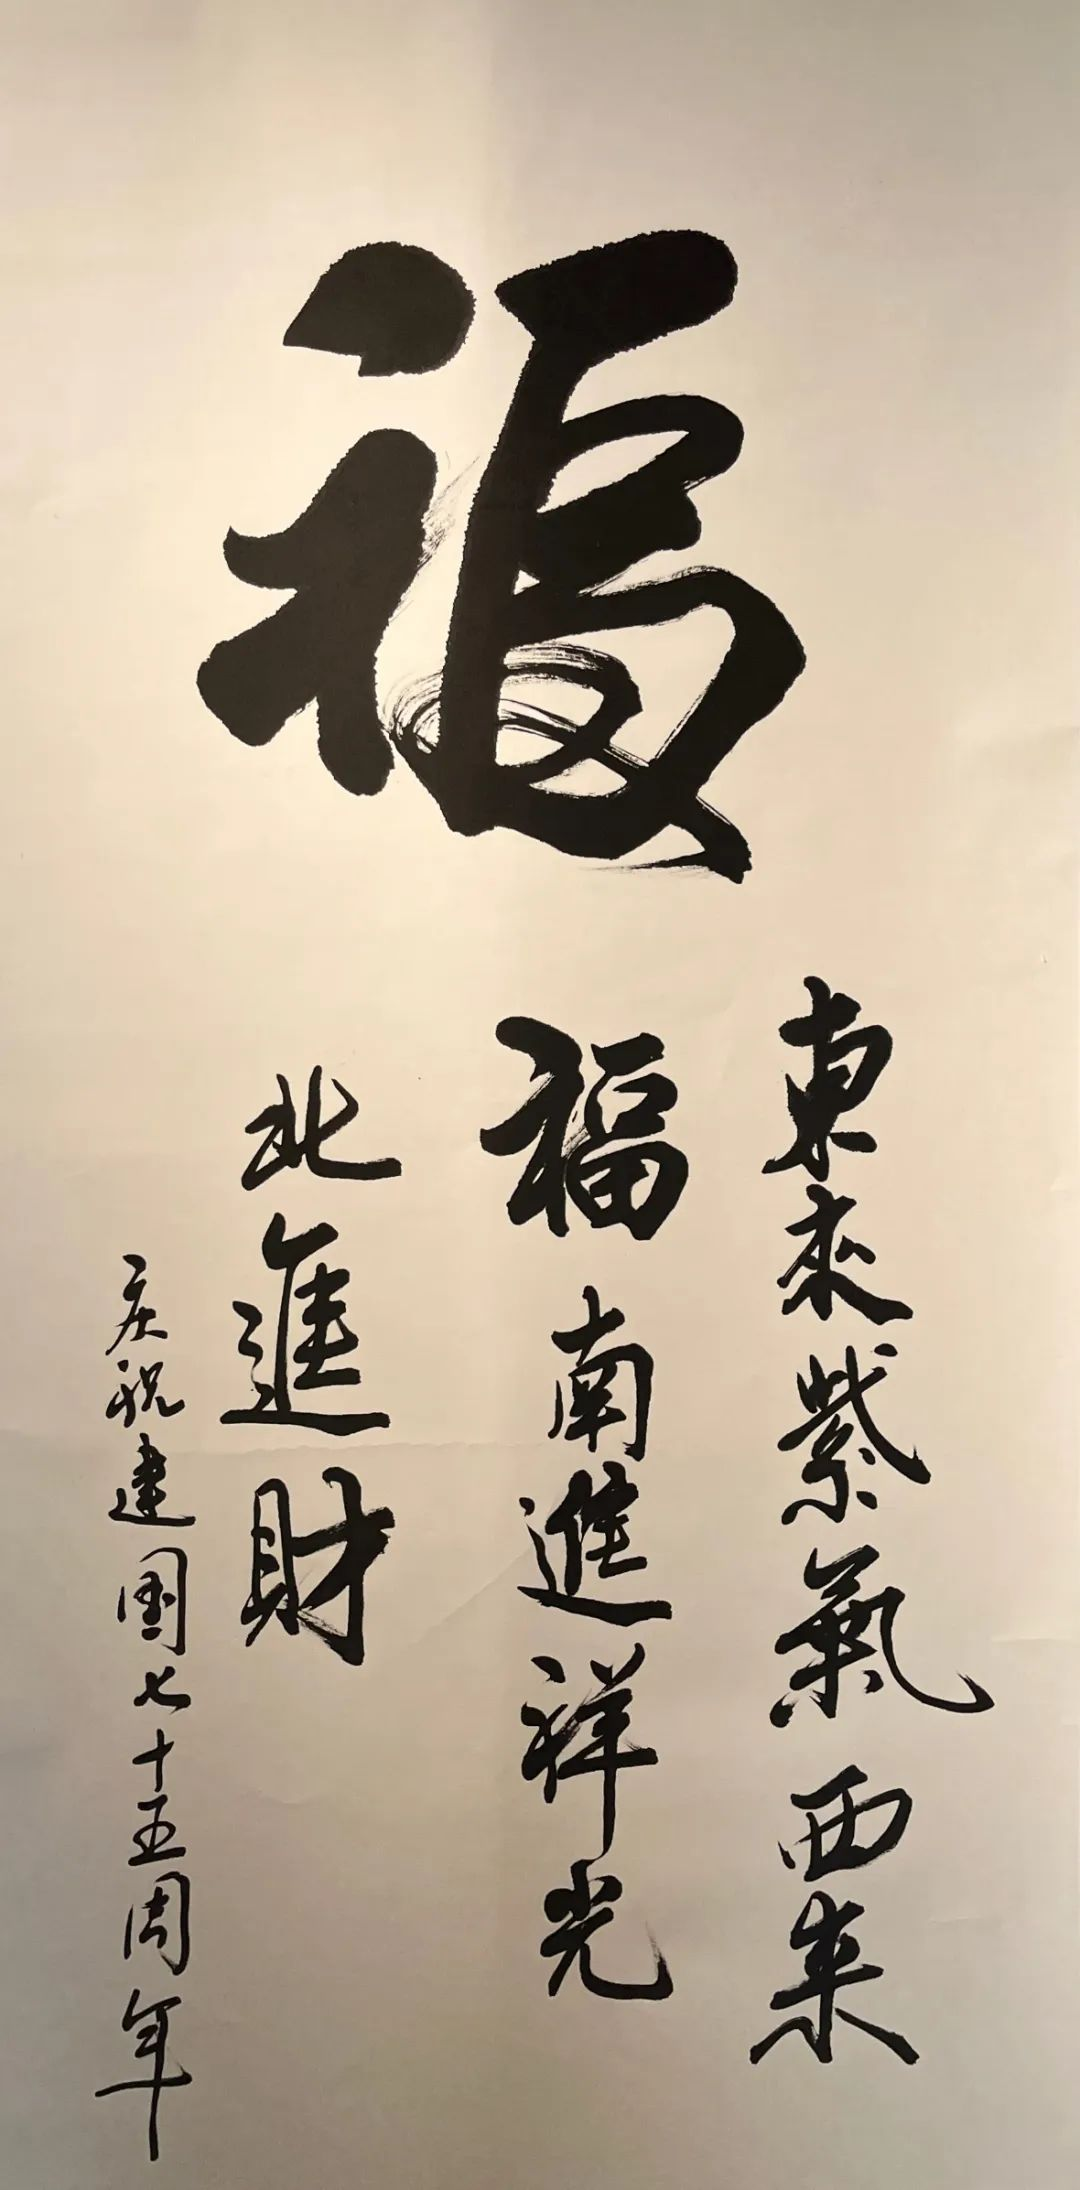 福
東來紫氣西来
福南進祥光
北進財
庆祝建国七十五周年